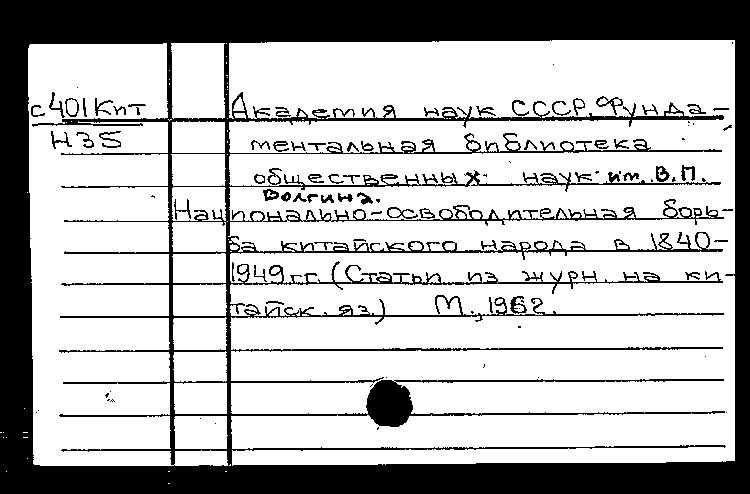 с401Кит Академия наук СССР, Фунда-
Н35 ментальная библиотека
общественных наук им. В.П.
Волгина.
Национально-освободительная борь-
ба китайского народа в 1840-
1949 гг. (Статьи из журн. на ки-
тайск. яз.) М., 1962.